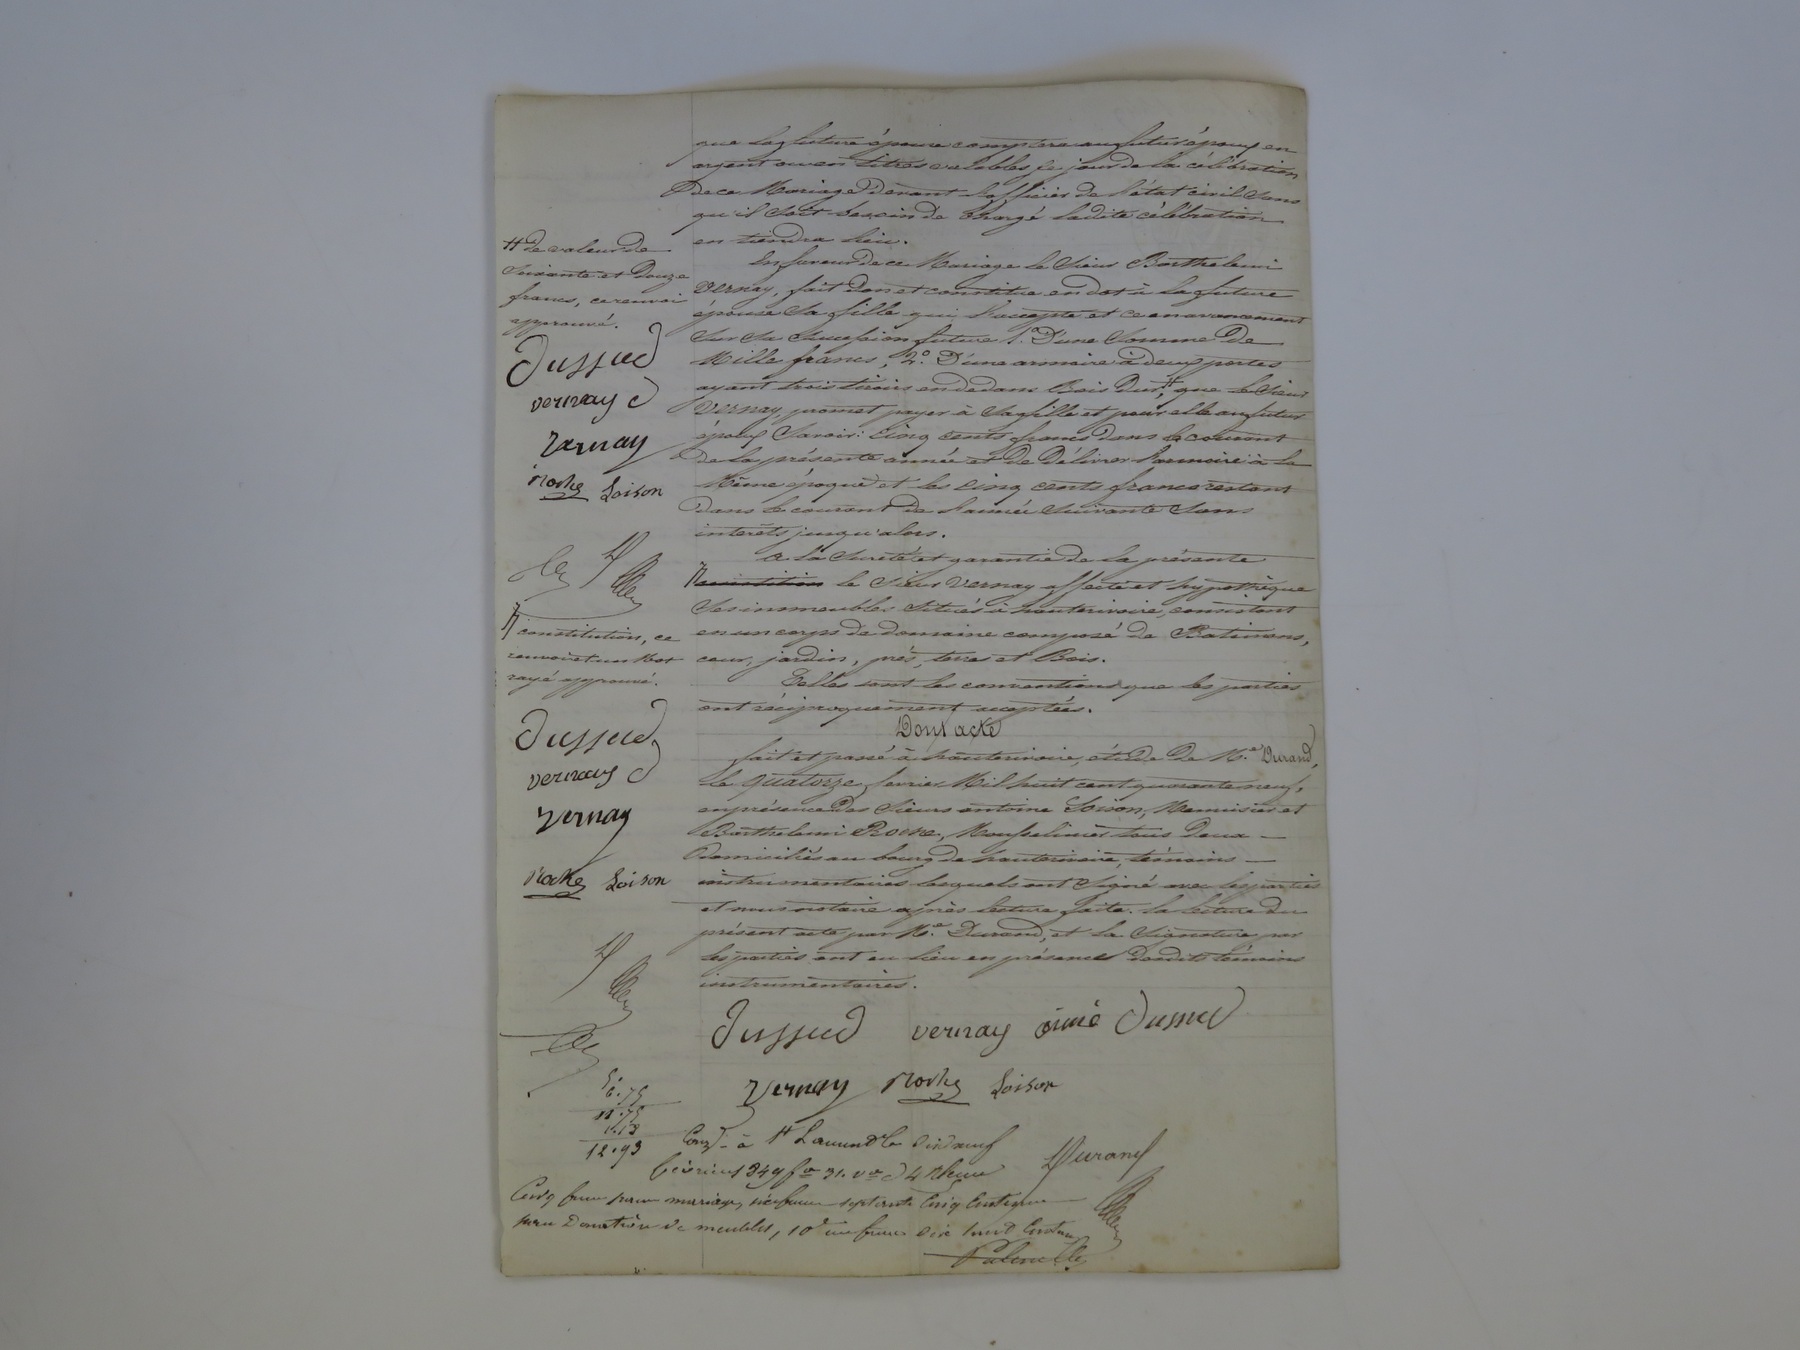 que la future épouse comptera au futur époux en
argent ou en titres valables le jour de la célébration
de ce Mariage devant l'officier de l'état civil sans
qu'il soit besoin de chargé ladite célébration
en tiendra lieu.
En faveur de ce Mariage le Sieur Barthelemi
Vernay, fait don et constitue en dot à la future
épouse sa fille qui l'accepte et ce en avancement
sur sa succession future 1.° D'une Somme De
Mille francs, 2.° D'une armoire à deux portes
ayant trois tiroirs en dedans Bois Dur, # que le Sieur
Vernay, promet payer à sa fille et pour elle au futur
époux Savoir: cinq cents francs dans le courant
de la présente année et De Délivrer l'armoire à la
Même époque et les cinq cents francs restant
dans le courant de l'année suivante sans
intérêts jusqu'alors.
A la Sureté et garantie de la présente
le Sieur Vernay affecte et hypothèque
ses immeubles situés à hauterivoire, consistant
en un corps de domaine composé de Batimens,
cour, jardin, prés, terres et Bois.
Telles sont les conventions que les parties
ont réciproquement acceptées.
Dont acte
fait et passé à hauterivoire, étude De M.e Durand,
le quatorze fevrier Mil huit cent quarante neuf,
en présence Des Sieurs antoine Loison, Menuisier et
Barthelemi Roche, Mousselinier tous Deux
domiciliés au bourg de hauterivoire, témoins
instrumentaires lesquels ont Signé avec les parties
et nous notaire après lecture faite. la lecture du
présent acte par M.e Durand, et la Signature par
les parties ont eu lieu en présence desdits témoins
instrumentaires.
# De valeur de
soixante et Douze
francs, ce renvoi
approuvé.
Dussud
vernay d
Vernay
Roche Loison
constitution, ce
renvoi et un Mot
rayé approuvé.
Dussud
vernay d
Vernay
Roche Loison
Dussud vernay ainé Dussud
Vernay Roche Loison
5.
6.75
11.75
1.18
12.93
à St Laurent le dixneuf
février 1849 f° 31. v°
Durand
Cinq francs pour mariage, six francs septante cinq centimes
pour Donation de meubles, 10e un franc dix huit centimes